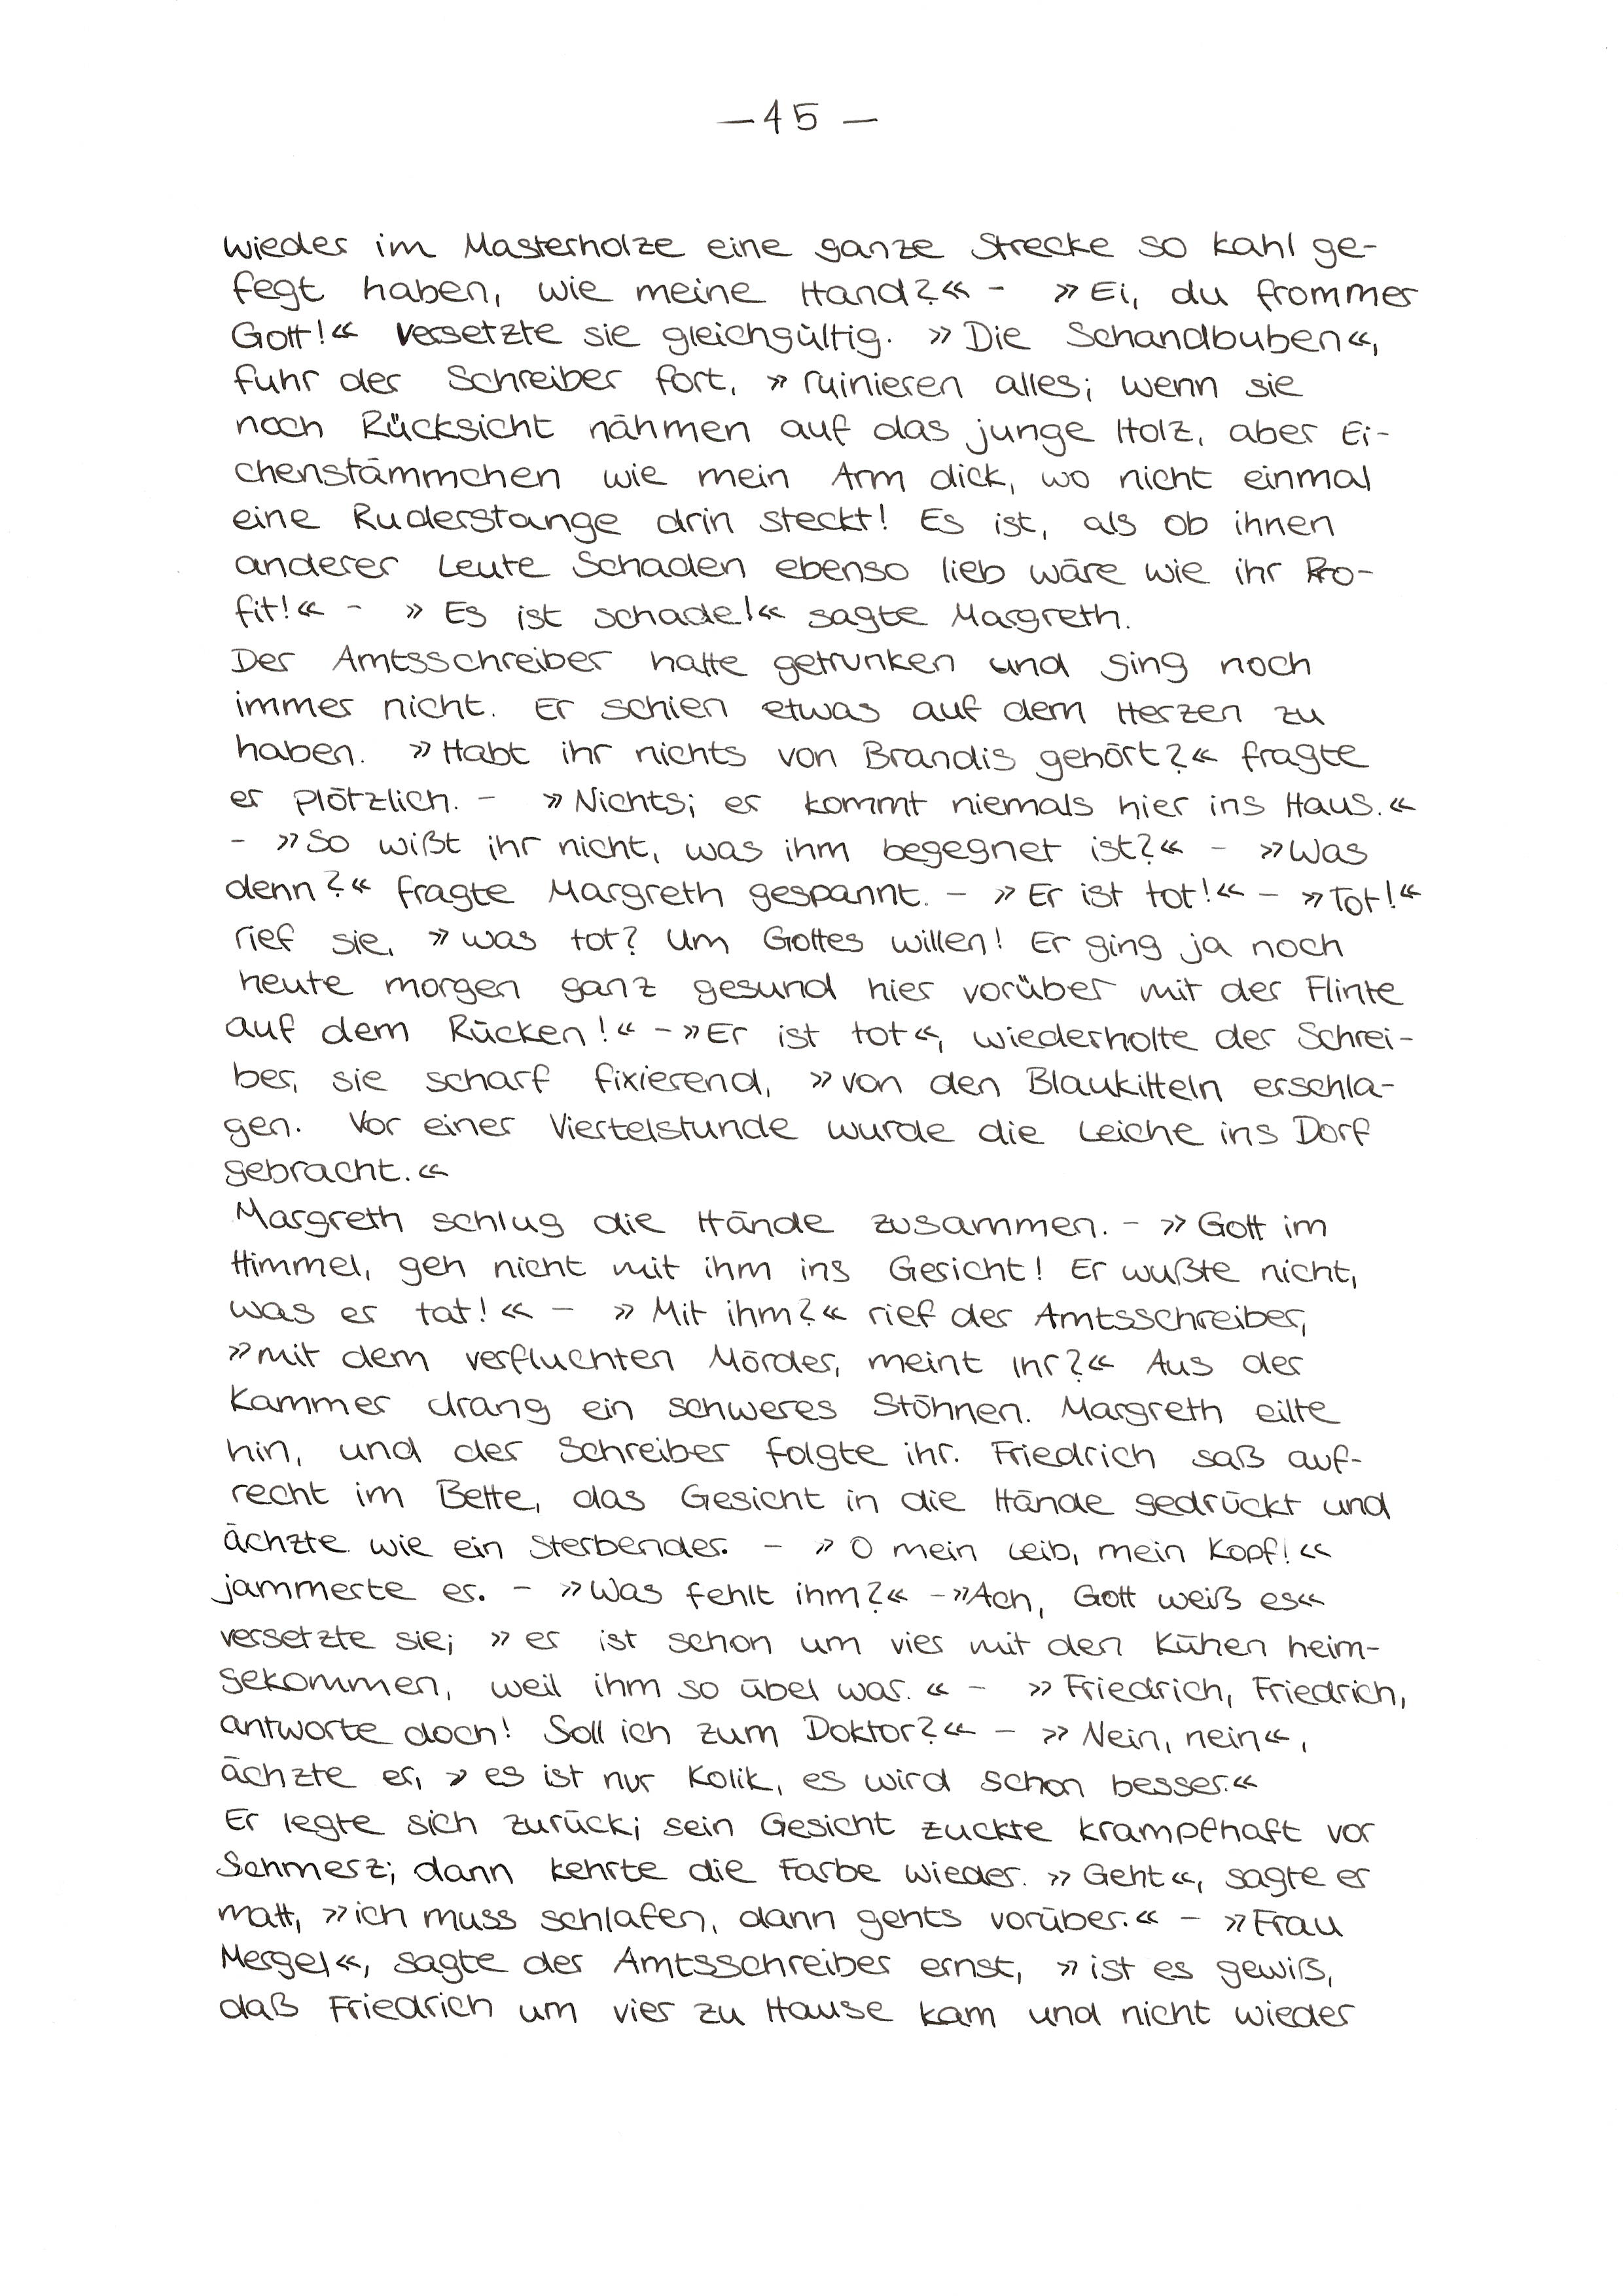 — 45 —
wieder im Masterholze eine ganze Strecke so kahl ge-
fegt haben, wie meine Hand?« - »Ei, du frommer
Gott!« versetzte sie gleichgültig. »Die Schandbuben«,
fuhr der Schreiber fort, »ruinieren alles; wenn sie
noch Rücksicht nähmen auf das junge Holz, aber Ei-
chenstämmchen wie mein Arm dick, wo nicht einmal
eine Ruderstange drin steckt! Es ist, als ob ihnen
anderer Leute Schaden ebenso lieb wäre wie ihr Pro-
fit!« - »Es ist schade!« sagte Margreth.
Der Amtsschreiber hatte getrunken und ging noch
immer nicht. Er schien etwas auf dem Herzen zu
haben. »Habt ihr nichts von Brandis gehört?« fragte
er plötzlich. - »Nichts; er kommt niemals hier ins Haus.«
- »So wißt ihr nicht, was ihm begegnet ist?« - »Was
denn?« fragte Margreth gespannt. - »Er ist tot!« - »Tot!«
rief sie, »was tot? Um Gottes willen! Er ging ja noch
heute morgen ganz gesund hier vorüber mit der Flinte
auf dem Rücken!« - »Er ist tot«, wiederholte der Schrei-
ber, sie scharf fixierend, »von den Blaukitteln erschla-
gen. Vor einer Viertelstunde wurde die Leiche ins Dorf
gebracht.«
Margreth schlug die Hände zusammen. - »Gott im
Himmel, geh nicht mit ihm ins Gericht! Er wußte nicht,
was er tat!« - »Mit ihm?« rief der Amtsschreiber,
»mit dem verfluchten Mörder, meint Ihr?« Aus der
Kammer drang ein schweres Stöhnen. Margreth eilte
hin, und der Schreiber folgte ihr. Friedrich saß auf-
recht im Bette, das Gesicht in die Hände gedrückt und
ächzte wie ein Sterbender. - »O mein Leib, mein Kopf!«
jammerte er. - »Was fehlt ihm?« - »Ach, Gott weiß es«
versetzte sie; »er ist schon um vier mit den Kühen heim-
gekommen, weil ihm so übel war.« - »Friedrich, Friedrich,
antworte doch! Soll ich zum Doktor?« - »Nein, nein«,
ächzte er, »es ist nur Kolik, es wird schon besser.«
Er legte sich zurück; sein Gesicht zuckte krampfhaft vor
Schmerz; dann kehrte die Farbe wieder. »Geht«, sagte er
matt, »ich muss schlafen, dann gehts vorüber.« - »Frau
Mergel«, sagte der Amtsschreiber ernst, »ist es gewiß,
daß Friedrich um vier zu Hause kam und nicht wieder